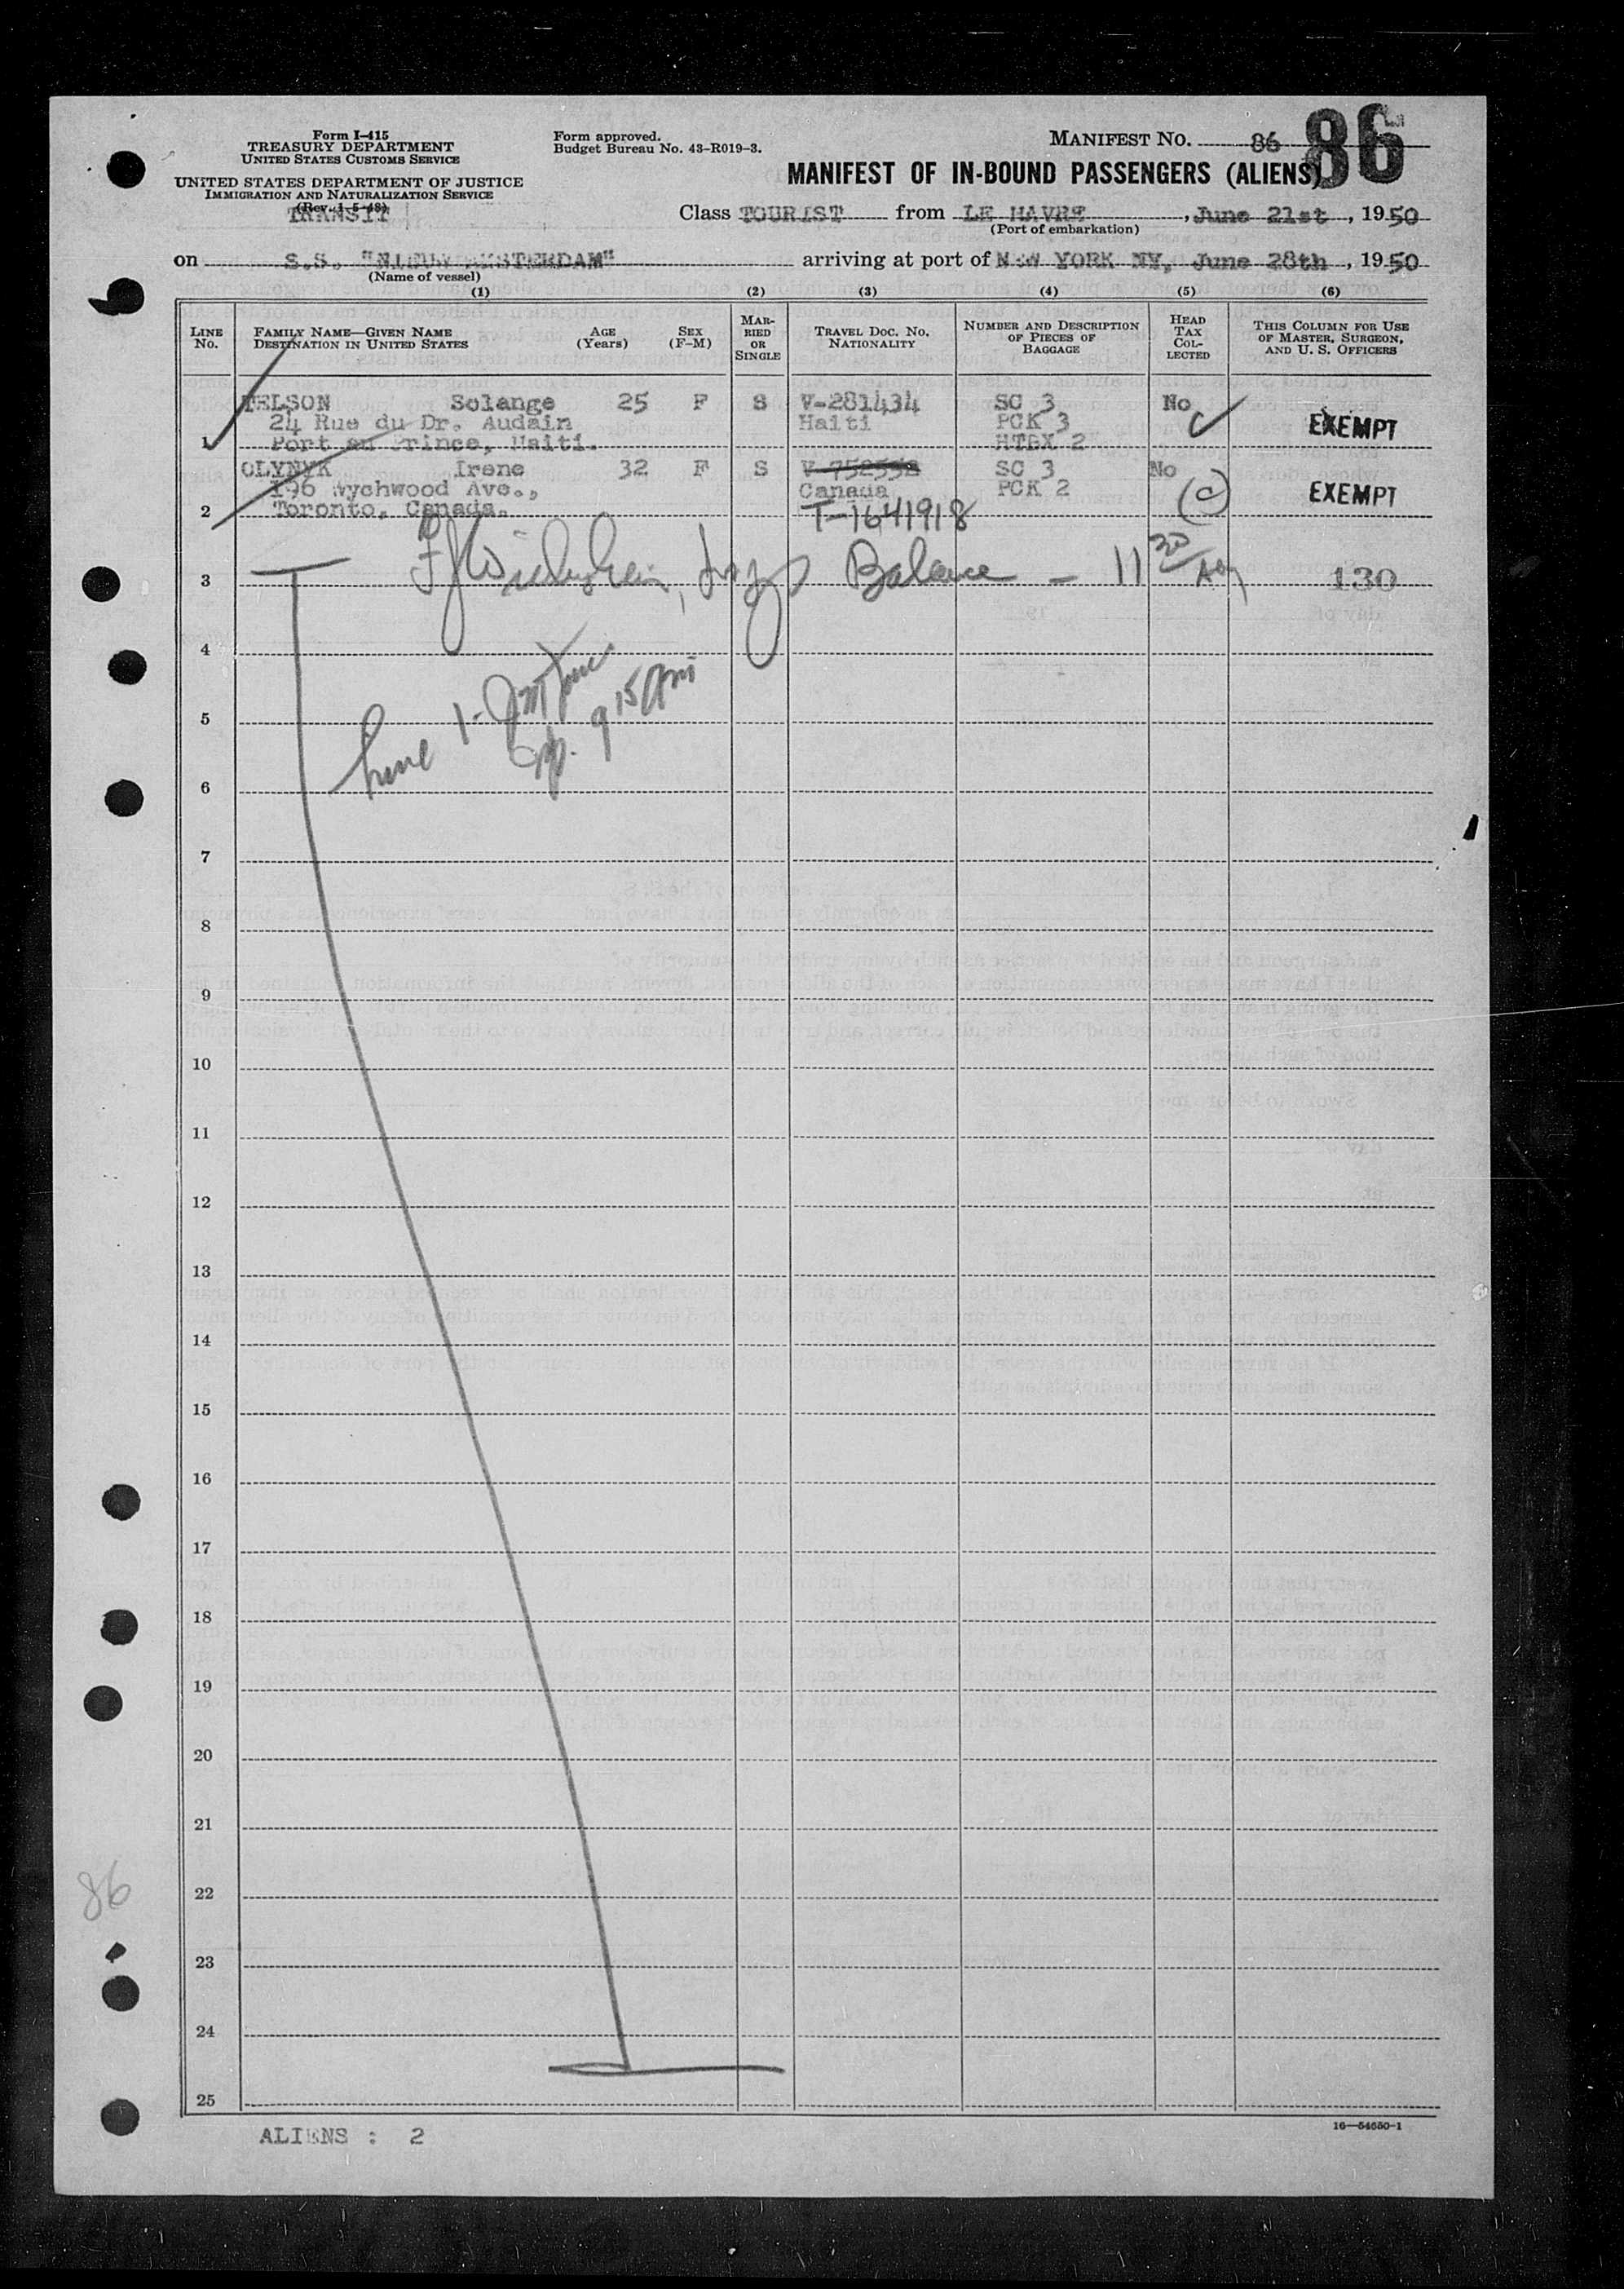 Form I-415
TREASURY DEPARTMENT
UNITED STATES CUSTOMS SERVICE
UNITED STATES DEPARTMENT OF JUSTICE
IMMIGRATION AND NATURALIZATION SERVICE
(Rev. 1-5-48)
TRANSIT
Form approved.
Budget Bureau No. 43-R019-3.
MANIFEST NO. 86
86
MANIFEST OF IN-BOUND PASSENGERS (ALIENS)
Class TOURIST from LE HAVRE, June 21st, 1950
(Port of embarkation)
on S.S. "NIEUW AMSTERDAM" arriving at port of NEW YORK NY, June 28th, 1950
(Name of vessel)
(1) (2) (3) (4) (5) (6)
LINE No. FAMILY NAME—GIVEN NAME DESTINATION IN UNITED STATES AGE (Years) SEX (F-M) MARRIED OR SINGLE TRAVEL DOC. NO. NATIONALITY NUMBER AND DESCRIPTION OF PIECES OF BAGGAGE HEAD TAX COLLECTED THIS COLUMN FOR USE OF MASTER, SURGEON, AND U. S. OFFICERS
TELSON Solange 25 F S V-281434 SC 3 No
24 Rue du Dr. Audain Haiti PCK 3 EXEMPT
1 Port au Prince, Haiti. HTBX 2
OLYNYK Irene 32 F S V-752552 SC 3 No
196 Wychwood Ave., Canada PCK 2 (c) EXEMPT
2 Toronto, Canada. T-1641918
3 Balance - 11 30 130
4
5
line 1-
9 15 pm
6
7
8
9
10
11
12
13
14
15
16
17
18
19
20
21
22
86
23
24
25
ALIENS : 2
16—54650-1